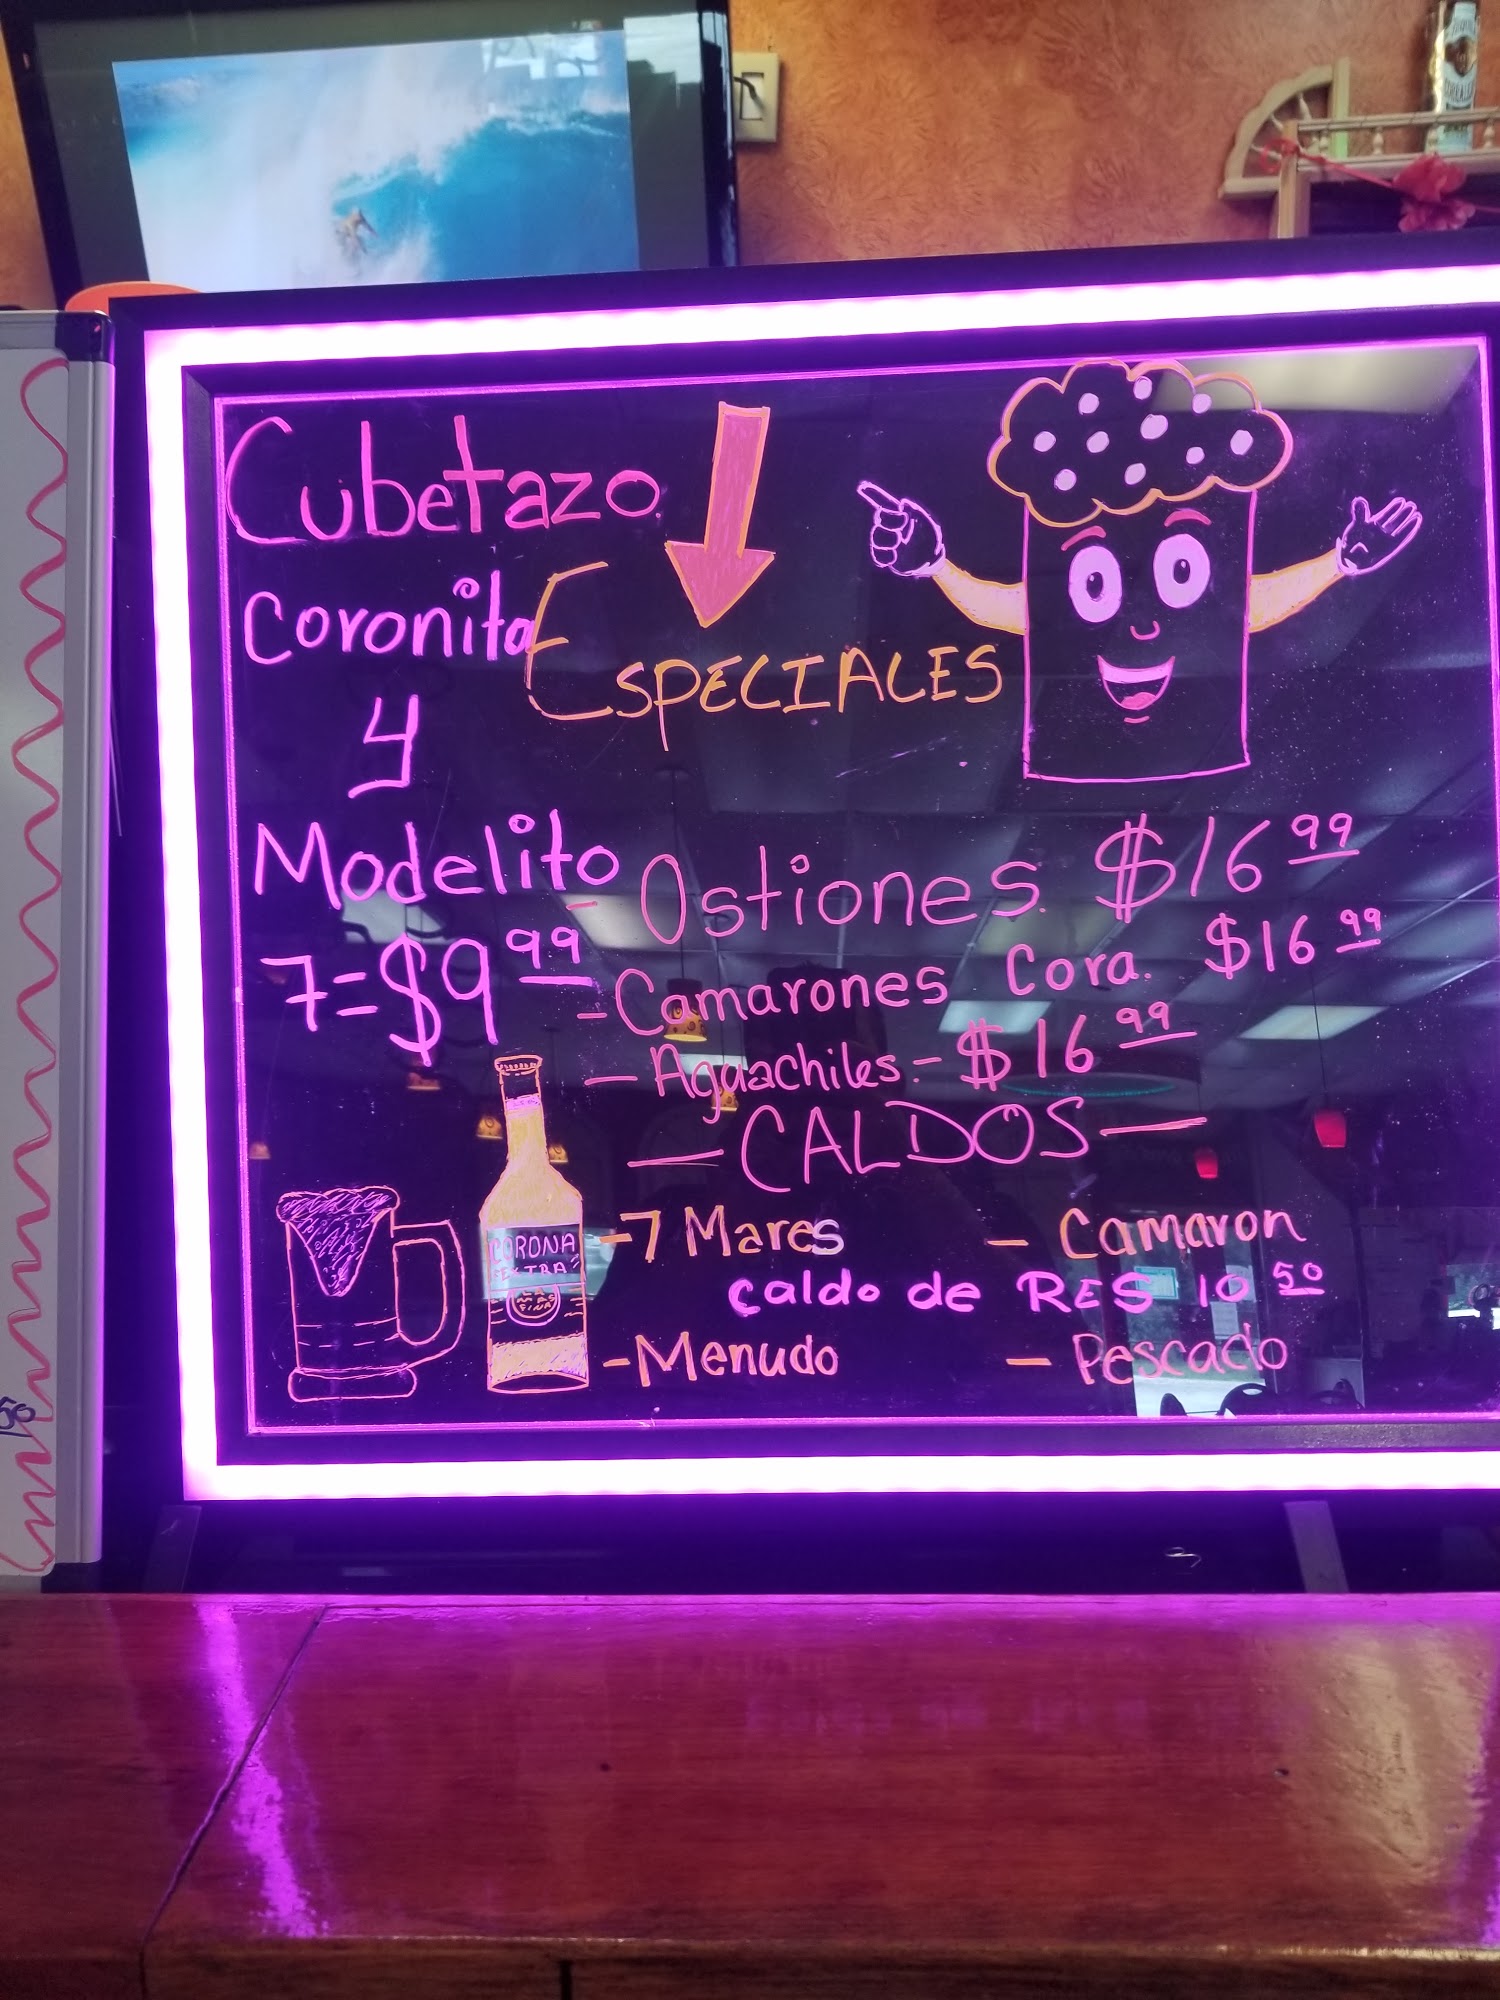 Cubetazo
Coronita
y
Modelito
7=$9 99
ESPECIALES
Ostiones. $16 99
-Camarones Cora. $16 99
- Aguachiles.- $16 99
- CALDOS -
-7 Mares
- Camaron
caldo de RES 10 50
-Menudo
- Pescado
CORONA
EXTRA
LA
MAS
FINA
50